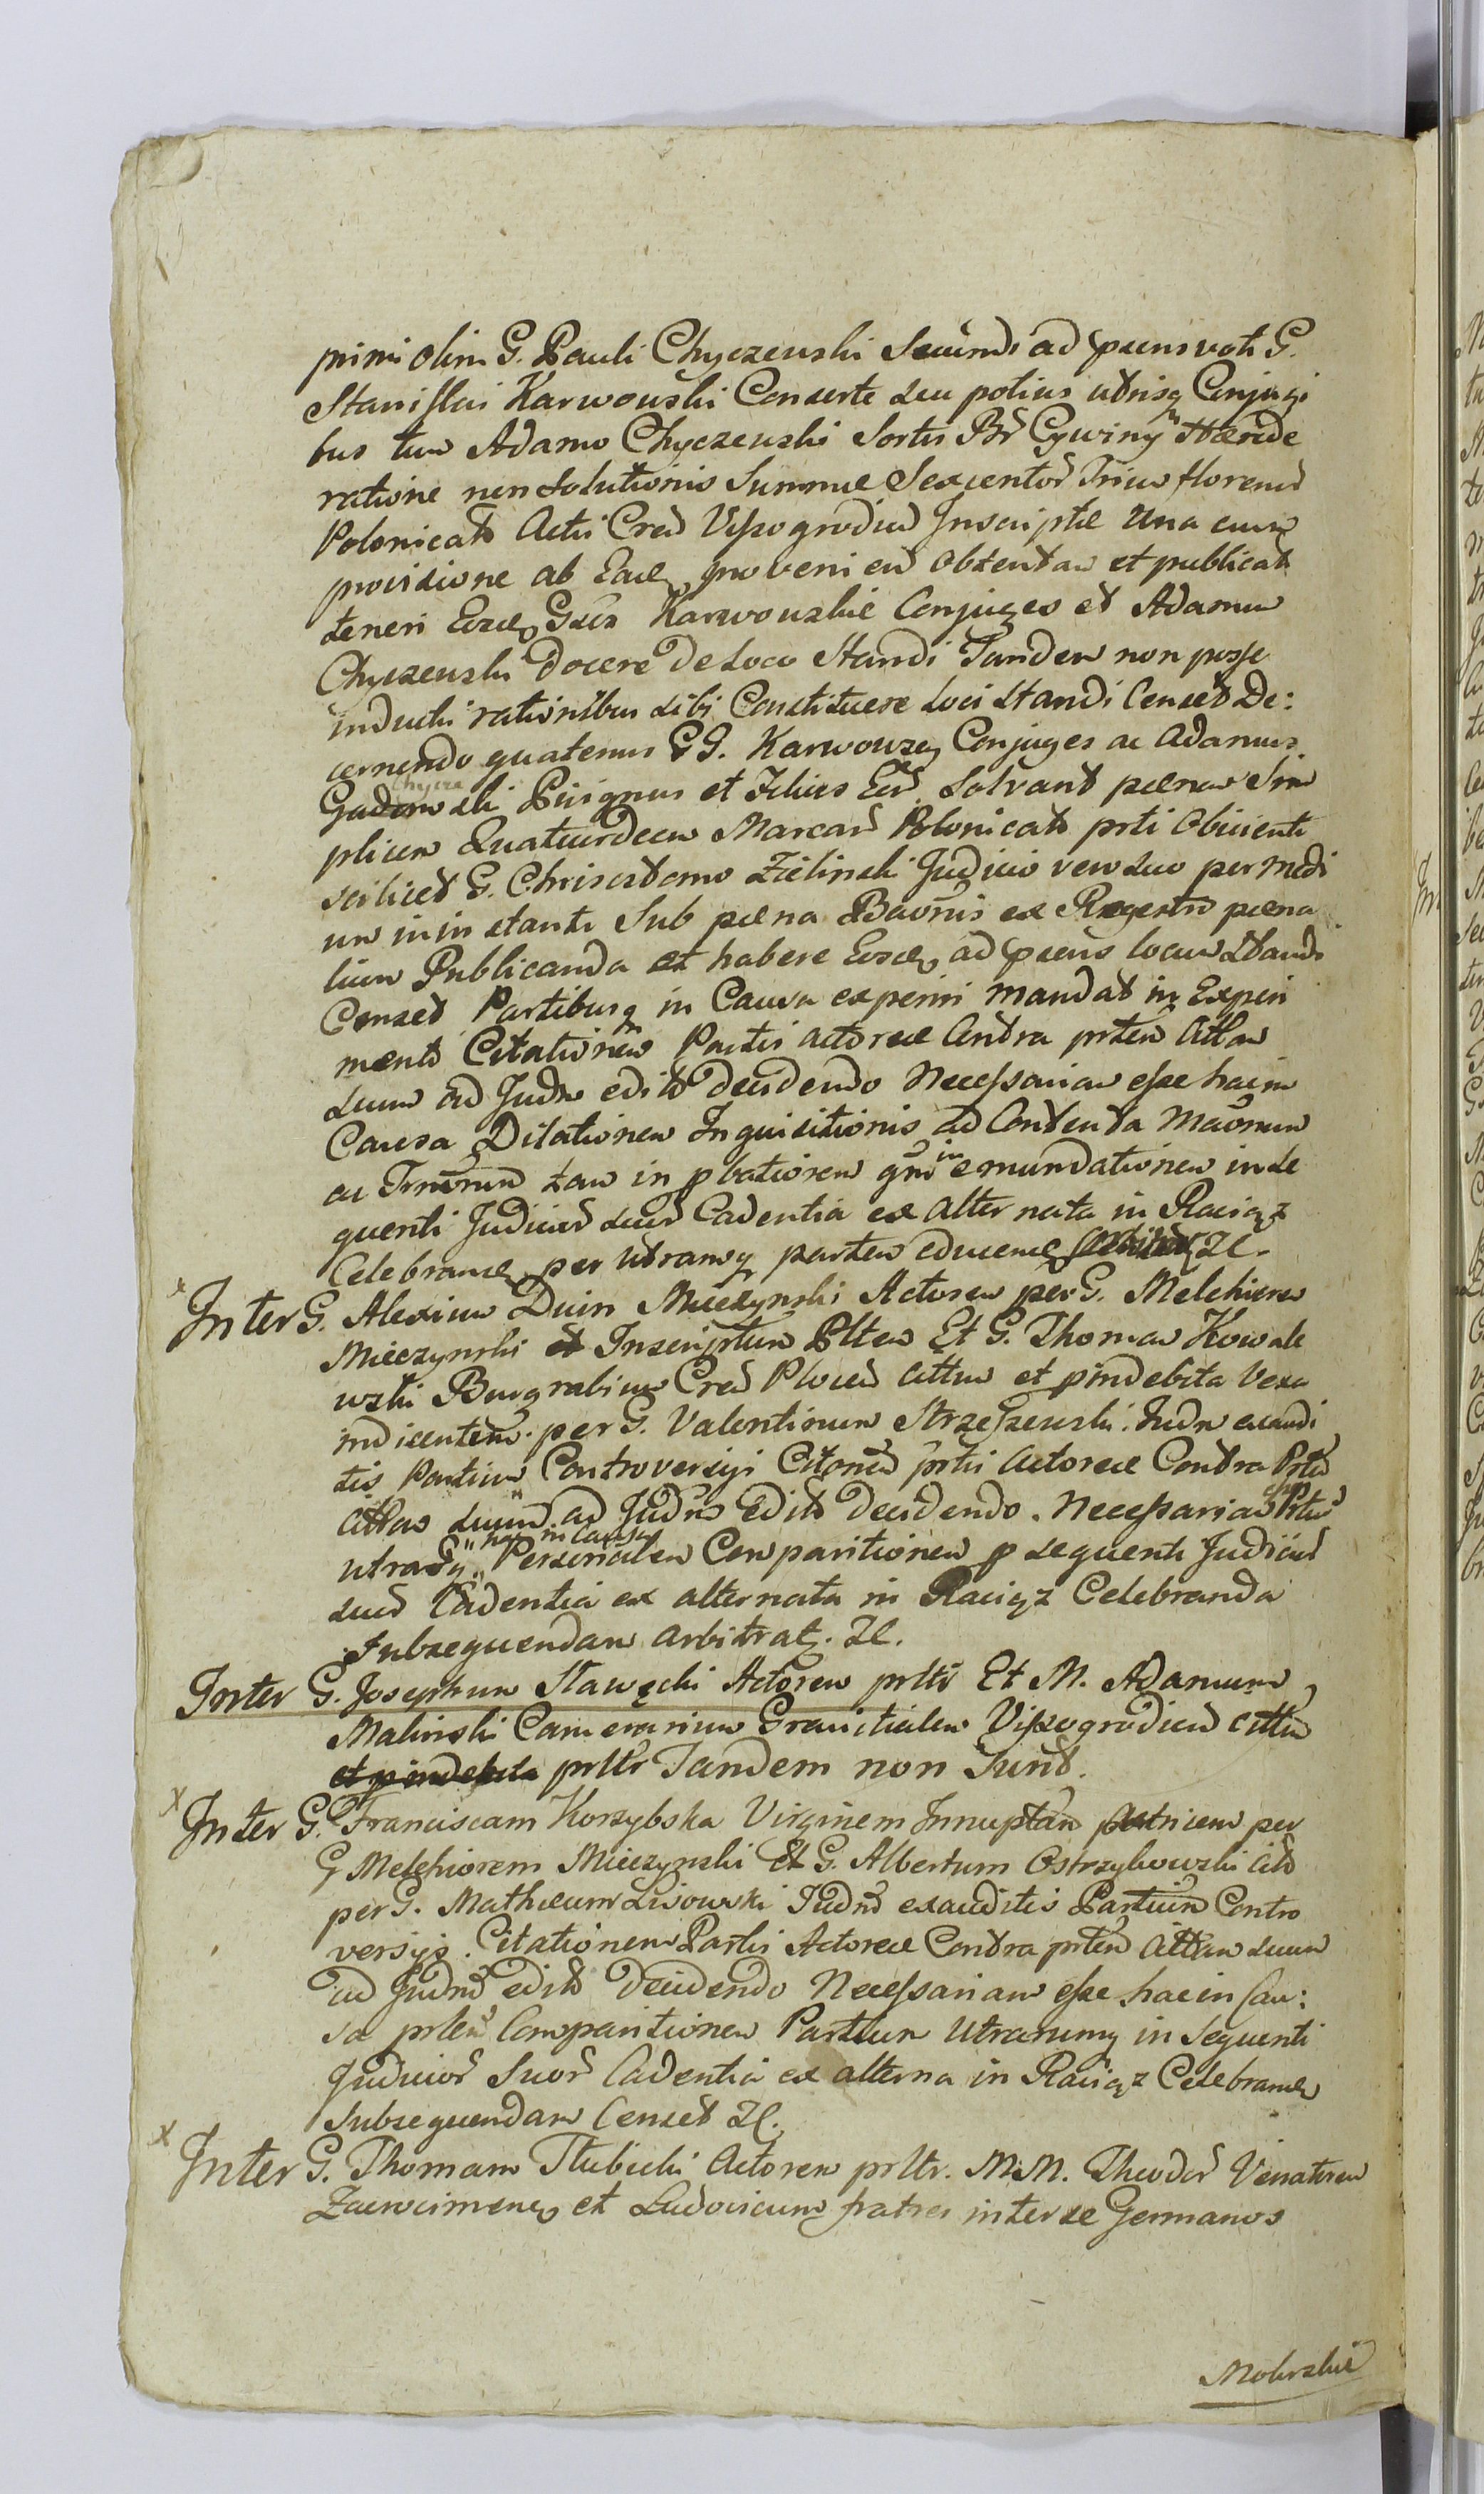 primi olim G. Pauli Chyczewski Secundi ad praens voti G.
Stanislai Karwowski Consorte seu potius utrisq Conjugi
bus tum Adamo Chyczewski Sortis Br Cywiny Hærede
ratione non Solutionis Summæ Sexcentor Trium florenor
Polonicals Actis Cren Vyszogrodien Inscriptæ Una cum
provisione ab Eadem provenien obtentam et publicat
teneri Eosdem Gsos Karwowskie Conjuges et Adamum
Chyczewski Docere De Loco Standi Tandem non posse
inductis rationibus sibi Constituere Loci Standi Censet De:
cernendo quatenus GG. Karwowscy Conjuges ac Adamus
Chycze
Gadomski Privignus et Filius Eor Solvant pænam Sim
plicem Quatuordecim Marcar Polonicals prti Obiicienti
scilicet G. Chrisostomo Zielinski Judicio vero suo per medi
um in instanti Sub pæna Baonis ex Regestro pæna
lium Publicanda et habere Eosdem ad præns locum Standi
Censet Partibusq in Causa experiri mandat in Experi
mento Citationem Partis actoreæ Contra prtem Cttam
suum ad Judm edito decidendo Necessariam esse hac in
Causa Dilationem Inquisitionis ad Contenta Maonum
ac Trnorum tam in pbationem qm in emundationem in se
quenti Judicior suor Cadentia ex alternata in Raciąz
Celebranda per Utramq partem educenda Il.
x Inter G. Alexium Duin Mieczynski Actorem per G. Melchiorem
Mieczynski et Inscriptum Pltem Et G. Thomam Kowale
wski Burgrabium Cren Plocen cittum et pindebita Vexa
indicentem per G. Valentinum Strzeszewski Judm exaudi
tis Partium Controversiji Citonem prtis Actoreæ Contra Prtem
Cttam suum ad Judm Edito Decidendo. Necessariam Prtium
hac in Causa
utrasq Personalem Comparitionem p sequenti Judicior
suor Cadentia ex alternata in Raciąz Celebranda
Subsequendam arbitrat. Il.
Inter G. Josephum Stawecki Actorem prltr Et M. Adamum
Malinski Camerarium Granicialem Vyszogrodien cittum
et pindebita prltr Tandem non Sunt.
x Inter G. Franciscam Korzybska Virginem Innuptam Actricem per
G Melchiorem Mieczynski Et G. Albertum Ostrzykowski Citt
per G. Mathæum Lisowski Judm exauditis Partium Contro
versijs. Citationem Partis Actoreæ Contra prtem Cittam suum
ad Judm edito Decidendo Necessariam esse hac in Cau:
sa prlem Comparitionem Partium Utrarumq in Sequenti
Judicior Suor Cadentia ex alterna in Raciąz Celebranda
Subsequendam Censet Il.
x Inter G. Thomam Tłubicki Actorem prltr. M.M. Theodor Venatorem
Zacwcimenem et Ludovicum fratres inter se Germanos
Mokrskie